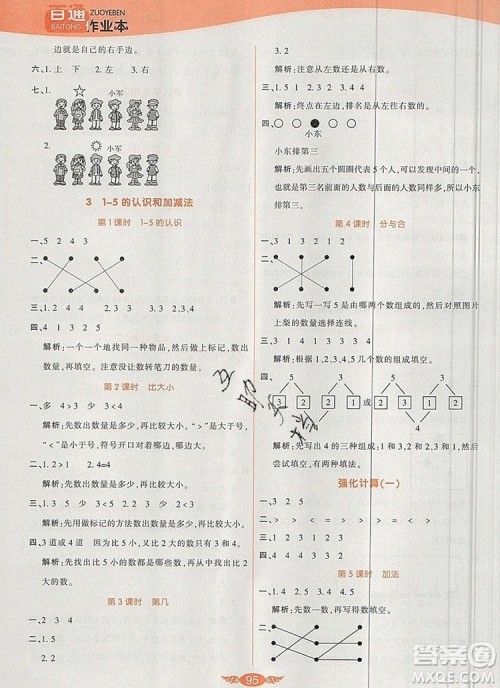 百通
BAITONG
ZUOYEBEN
作业本
边就是自己的右手边。
六、1. 上 下 2. 左 3. 右
七、1. 小军
2. 小军
3 1~5的认识和加减法
第1课时 1~5的认识
一、5 2 4 3
二、
三、1. 1 2. 3 5 2. 3. 4
四、4
解析:一个一个地找同一种物品,然后数出它们的数量。注意没让数转笔刀的数量。
第2课时 比大小
一、多 4 > 3 少 3 < 4
解析:先数出数量是多少,再比较大小。“>”是大于号,“<”是小于号,符号开口对着大数。
二、1. 4 1 2. 4 = 4
解析:先数出数量是多少,再比较大小。
三、1. 3 5 少 3 < 5 2. 多 5 > 3
解析:先用做标记的方法数出数量是多少,再比较大小。
四、3道或4道 因为5比2大,又比5小
解析:先找出比5小的数都是哪些数,再找出比2大的数。
第3课时 第几
一、1. 5
2. 2
3. 2
解析:注意从左数还是从右数。
三、1
解析:终点在左边,排名是从左边数的。
四、
小东
小东排第三
解析:先画出五个圆圈代表5个人,可以发现,这里的第三名前面的人数与后面的人数同样多,所以小东排第三。
第4课时 分与合
一、3 1 3 1 2 1
二、
解析:先写一写5是由哪两个数组成的,然后对照图片上梨的数量选择连线。
三、1 4 2 4
解析:先想一想每个数的组成,然后根据组成填空。
四、
5 3
3 2 1 2 或 4 1 2 1
4 3
解析:先写出4的三种组成:1和3,2和2,3和1,然后尝试填空,有两种填法。
强化计算(一)
一、3 2 3 2 4
二、> > < = > < > < = >
四、2 3 3 1 4 1 4 2
第5课时 加法
一、5
解析:先数一数,再写算式求得数填空。
二、
95